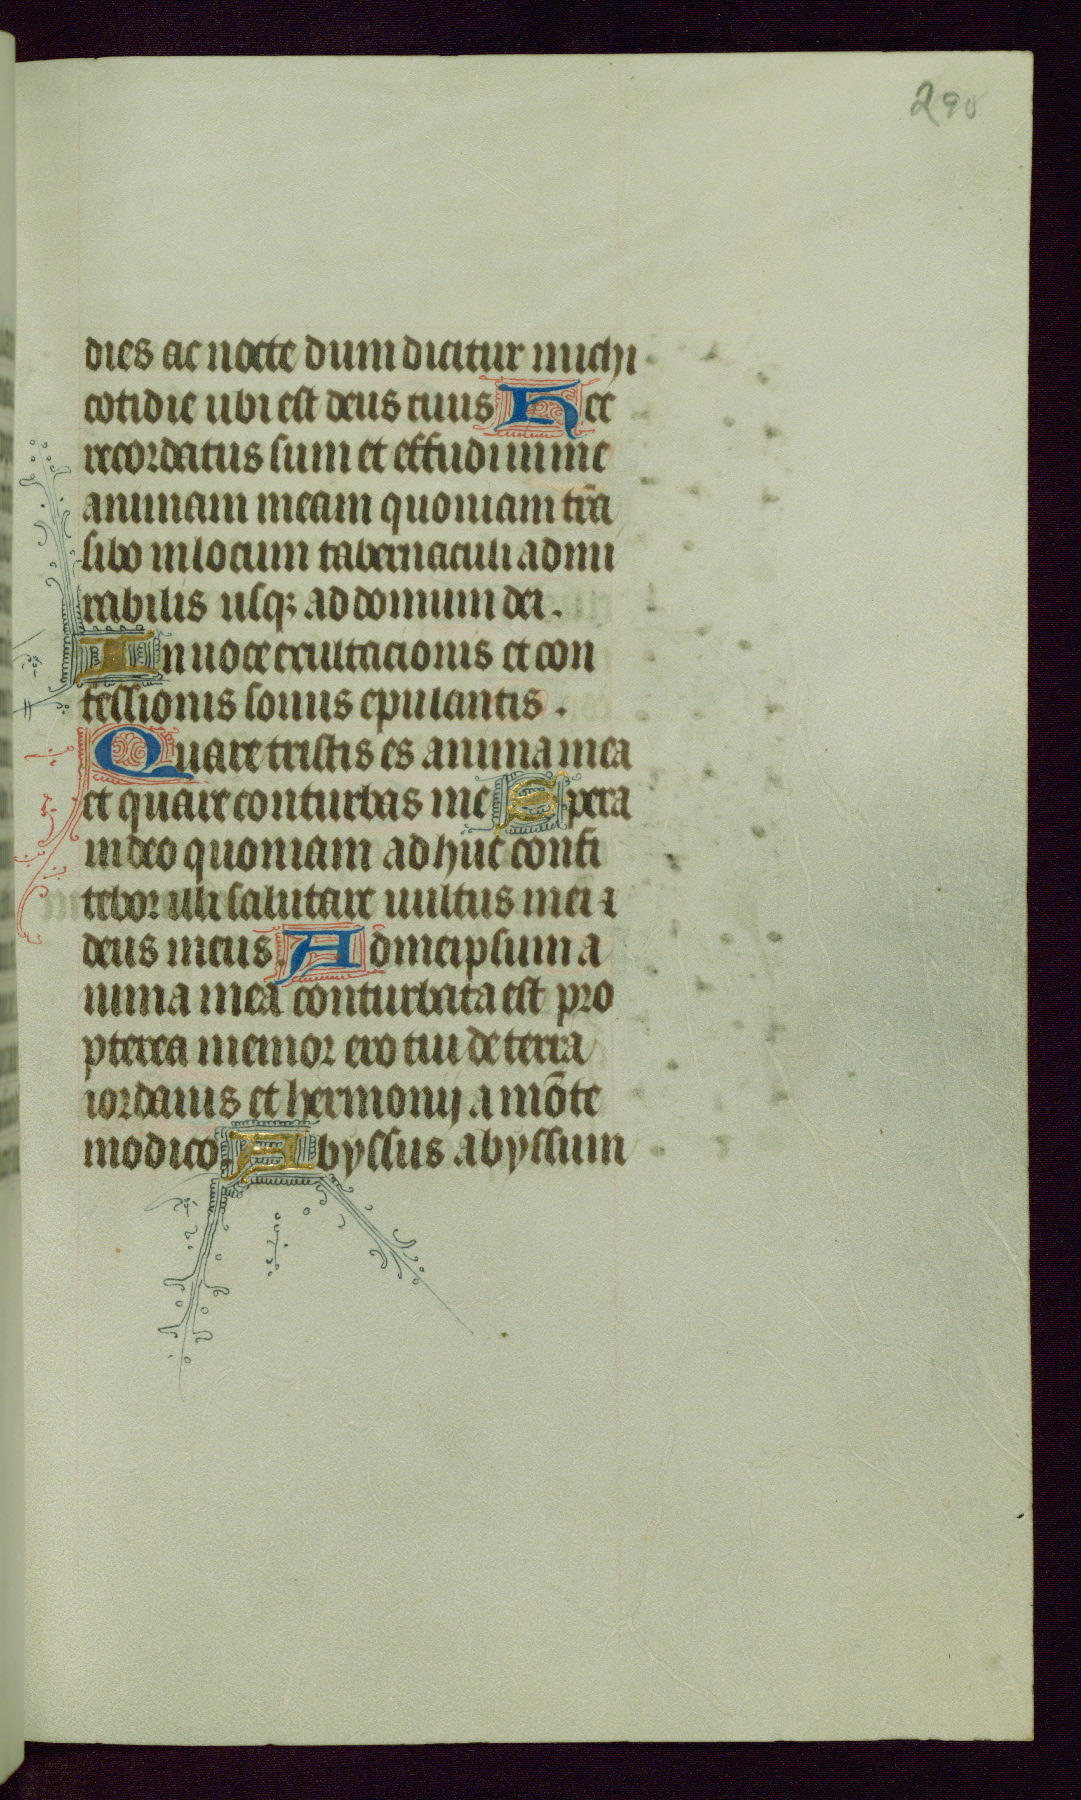 290
dies ac nocte dum dicitur michi
cotidie ubi est deus tuus Hec
recordatus sum et effudi in me
animam meam quoniam trā
sibo in locum tabernaculi admi
rabilis usqꝫ ad domum dei.
In uoce exultacionis et con
fessionis sonus epulantis.
Quare tristis es anima mea
et quare conturbas me Spera
in deo quoniam ad huc confi
tebor illi salutare uultus mei ⁊
deus meus. Ad meipsum a
nima mea conturbata est pro
pterea memor ero tui de terra
iordanis et hermonij a mōte
modico. Abyssus abyssum